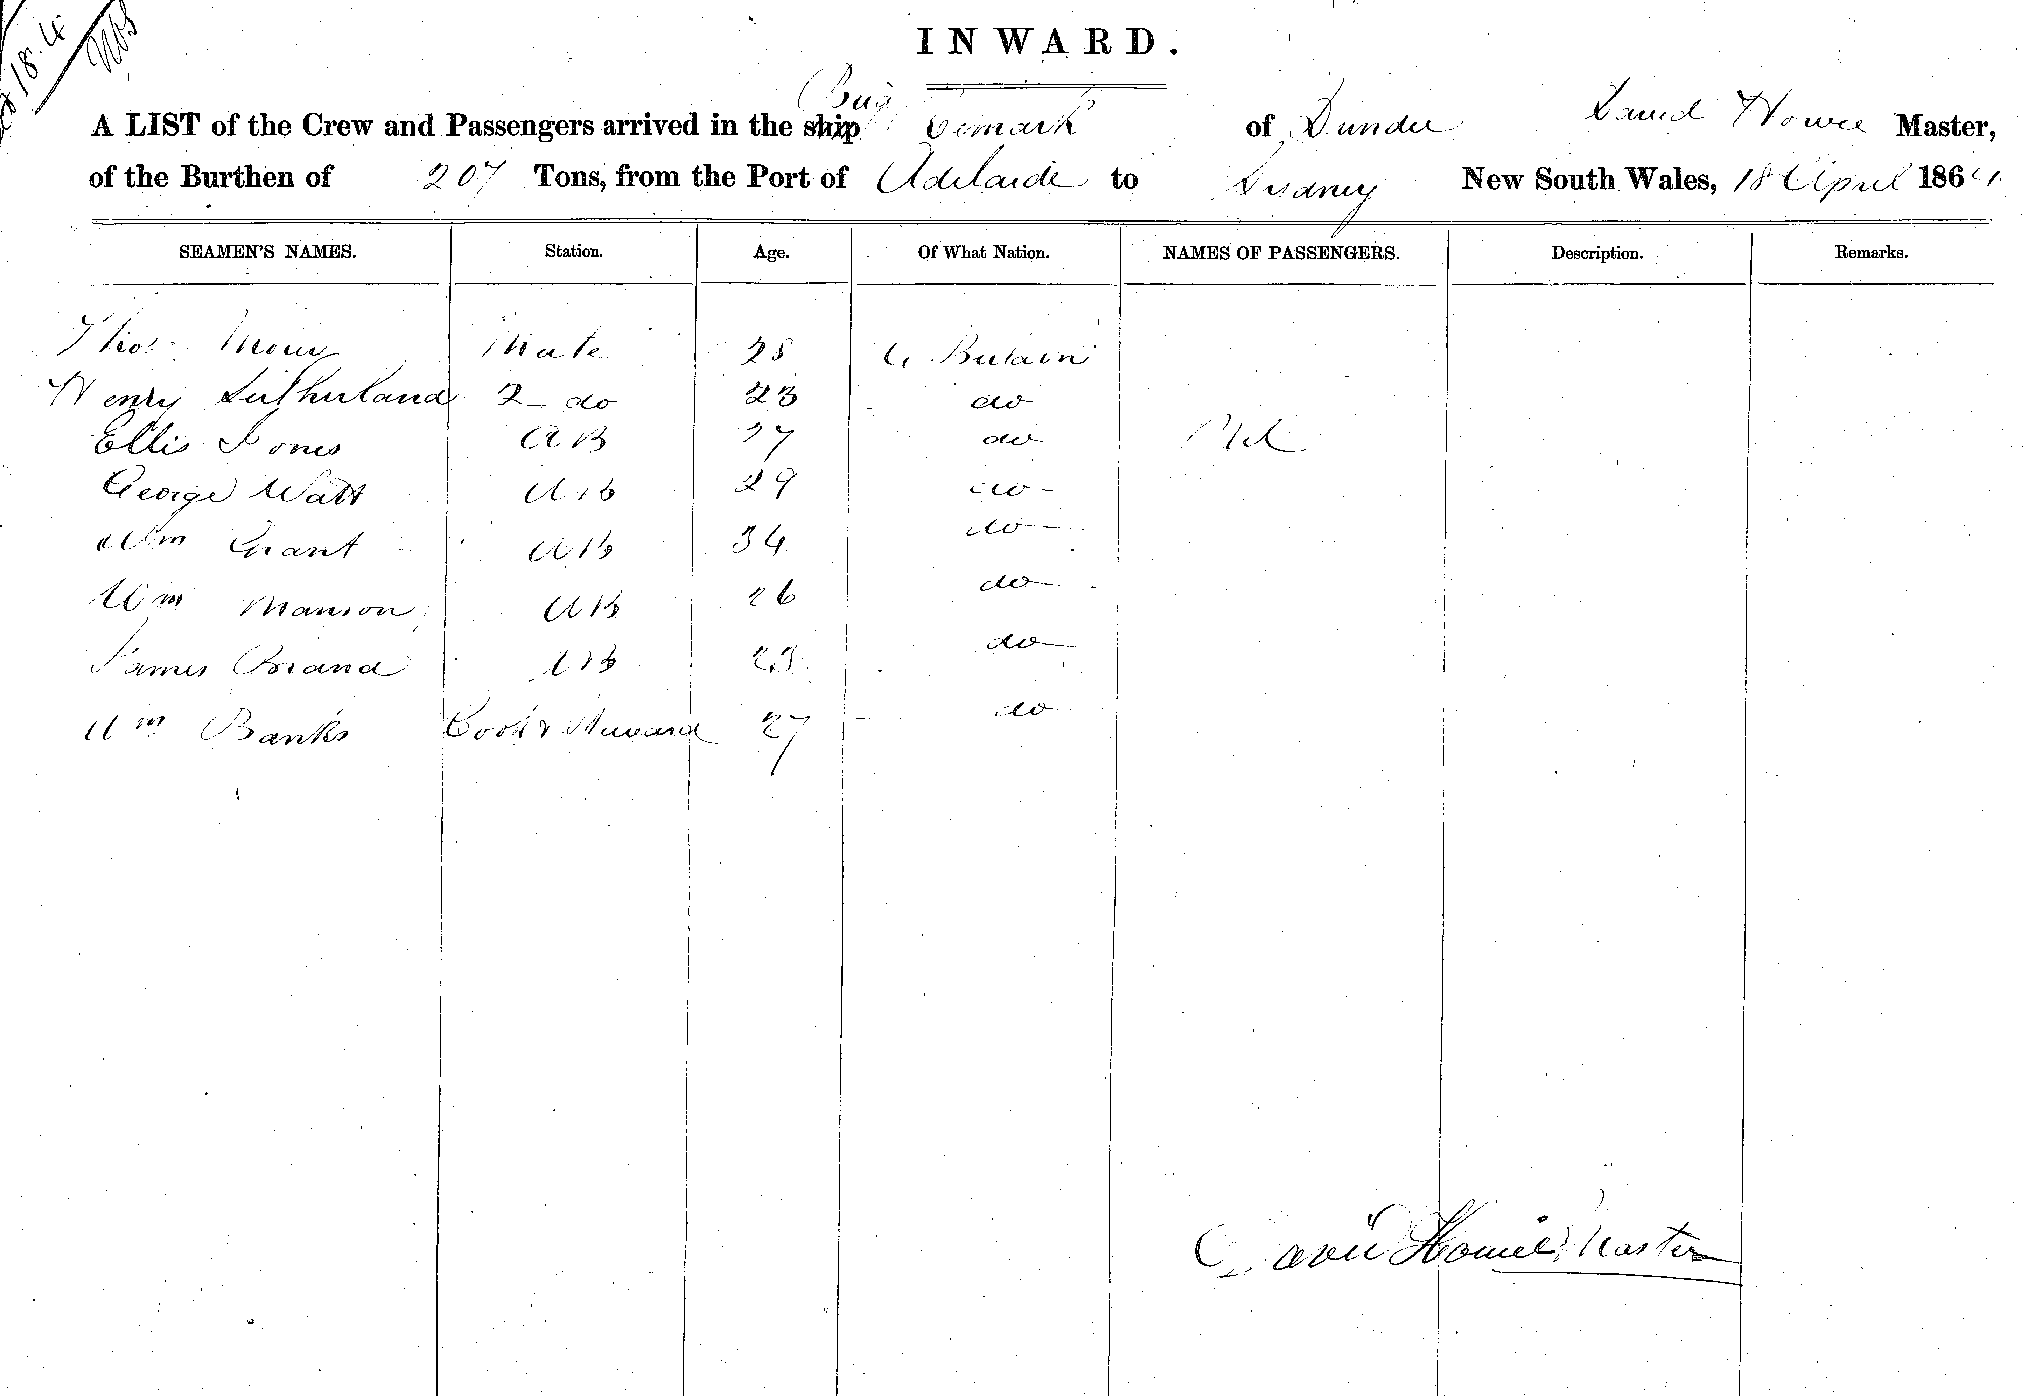 18.4
INWARD.
Brig
A LIST of the Crew and Passengers arrived in the ship of Dundee David Howie Master,
of the Burthen of 207 Tons, from the Port of Adelaide to Sydney New South Wales, 18 April 1864
SEAMEN'S NAMES. Station. Age. Of What Nation. NAMES OF PASSENGERS. Description. Remarks.
Thos Mate G Britain
Henry Sutherland 2 do 23 do
Ellis Jones AB do Nil
George Watt AB 29 do
Wm Grant AB 34 do
Wm Manson AB 26 do
James Brand AB 23 do
Wm Banks Cook & Steward 27 do
David Howie Master